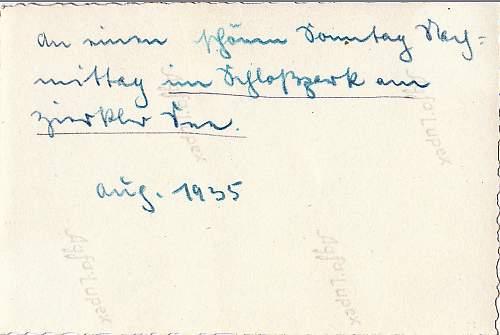 An einen schönen Sonntag Nach=
mittag im Schloßpark am
Zierker See.
Aug. 1935
Agfa-Lupex
Agfa-Lupex
Agfa-Lupex
Agfa-Lupex